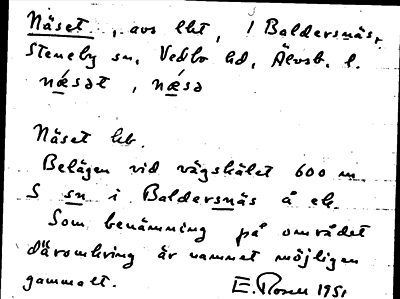 Näset, avs lht, / Baldersnäs,
Steneby sn, Vedbo hd, Älvsb. l.
nǽsət, nǽsə
Näset hb.
Belägen vid vägskälet 600 m
S sn i Baldersnäs å ek.
Som benämning på området
däromkring är namnet möjligen
gammalt. E. Rosell 1951